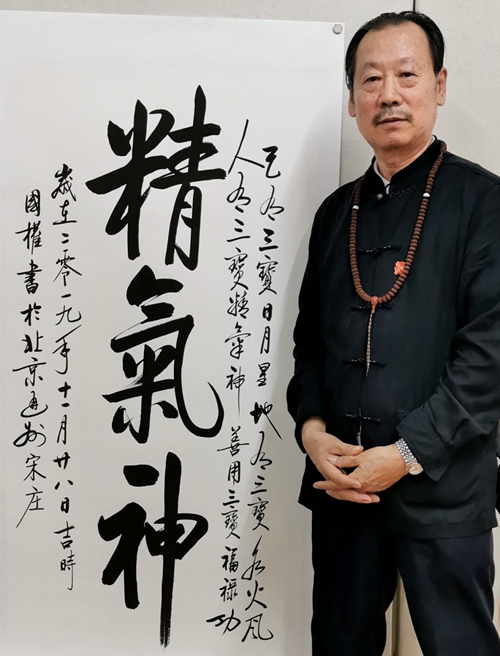 天有三寶日月星 地有三寶水火風
人有三寶精氣神 善用三寶福祿功
精氣神
歲在二零一九年十一月廿八日吉時
國權書於北京通州宋庄